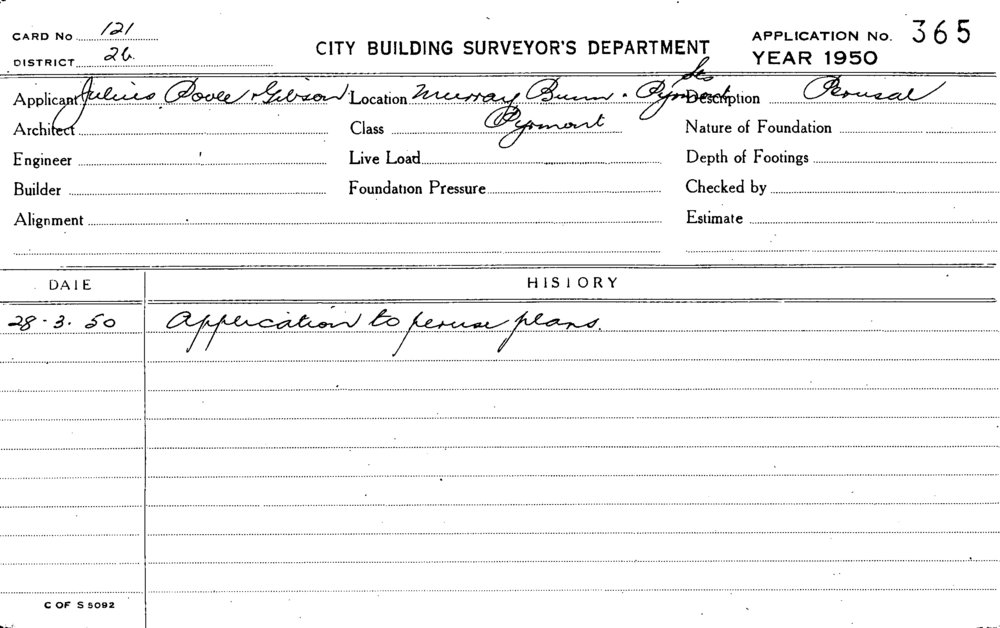 CARD No 121
DISTRICT 26.
CITY BUILDING SURVEYOR'S DEPARTMENT
APPLICATION No. 365
YEAR 1950
Applicant Julius Poole & Gibson Location Murray Bunn. Pyrmont Sts Description Perusal
Architect Class Pyrmont Nature of Foundation
Engineer Live Load Depth of Footings
Builder Foundation Pressure Checked by
Alignment Estimate
DATE HISTORY
28-3.50 Application to peruse plans.
C OF S 5092